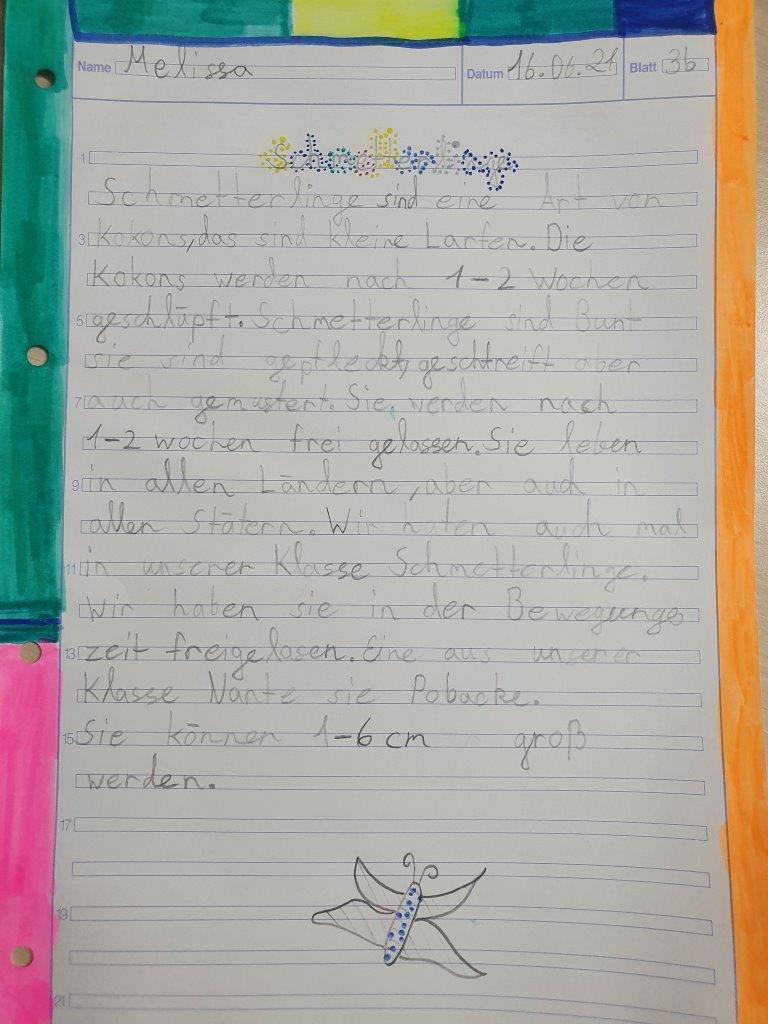 Name Melissa Datum 16.06.21 Blatt 3b
Schmetterlinge
1 Schmetterlinge sind eine Art von
3 Kokons, das sind kleine Larfen. Die
Kokons werden nach 1-2 Wochen
5 geschlüpft. Schmetterlinge sind Bunt
sie sind gepfleckt, geschtreift aber
7 auch gemustert. Sie werden nach
1-2 wochen frei gelassen. Sie leben
9 in allen Ländern, aber auch in
allen Stätern. Wir haten auch mal
11 in unserer Klasse Schmetterlinge.
Wir haben sie in der Bewegungs
13 zeit freigelasen. Eine aus unserer
Klasse Nante sie Pobacke.
15 Sie können 1-6 cm groß
werden.
17
19
21